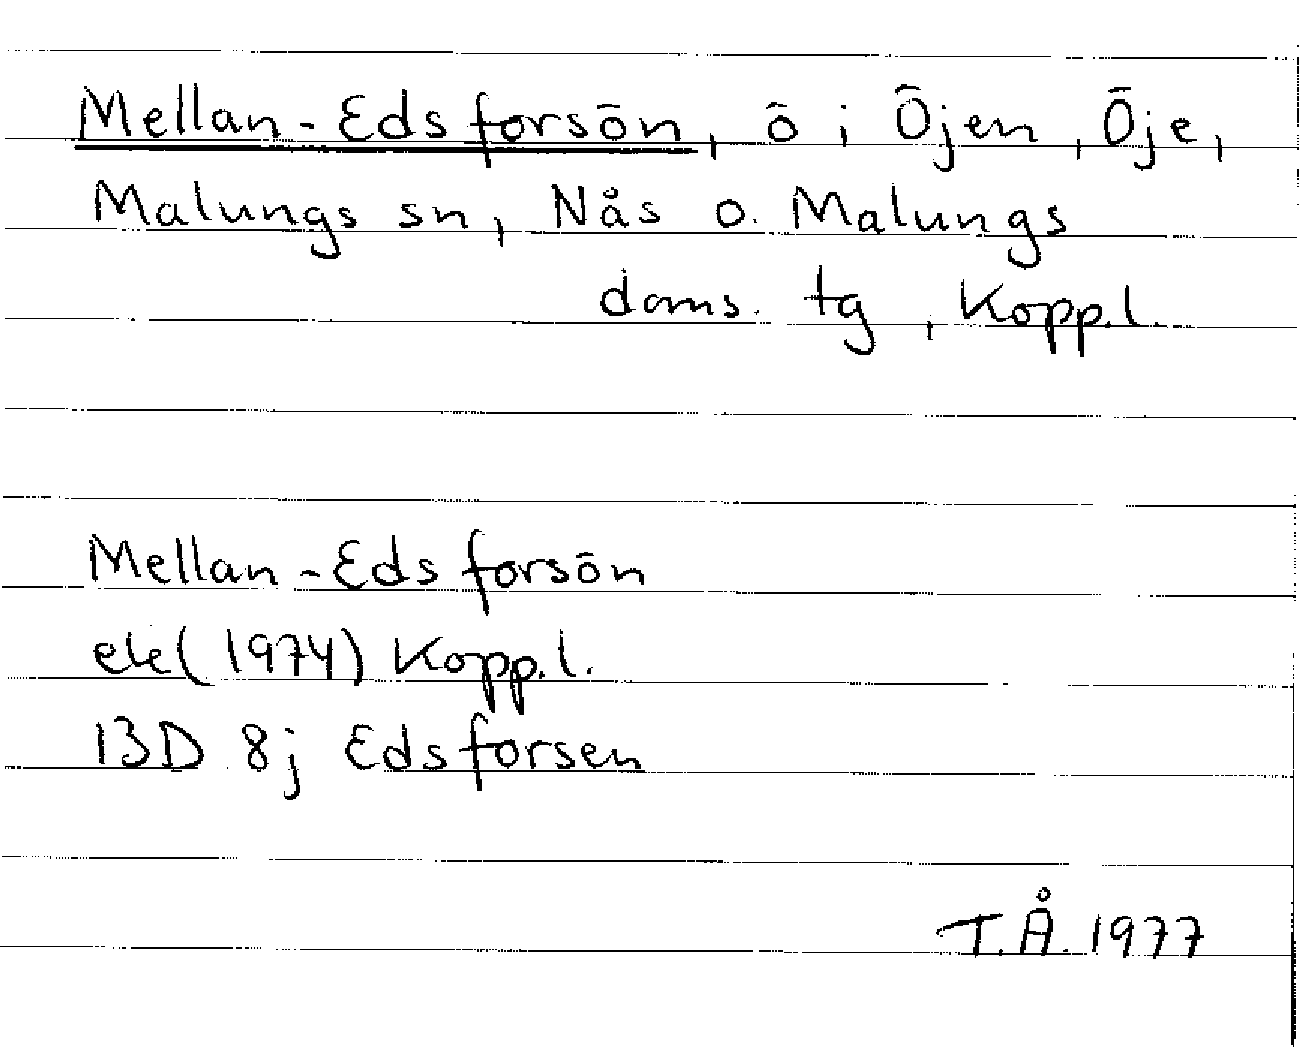 Mellan-Edsforsön, ö i Öjen, Öje,
Malungs sn, Nås o. Malungs
doms. tg, Kopp.l.
Mellan-Edsforsön
ek(1974) Kopp.l.
13D 8j Edsforsen
T.Å. 1977